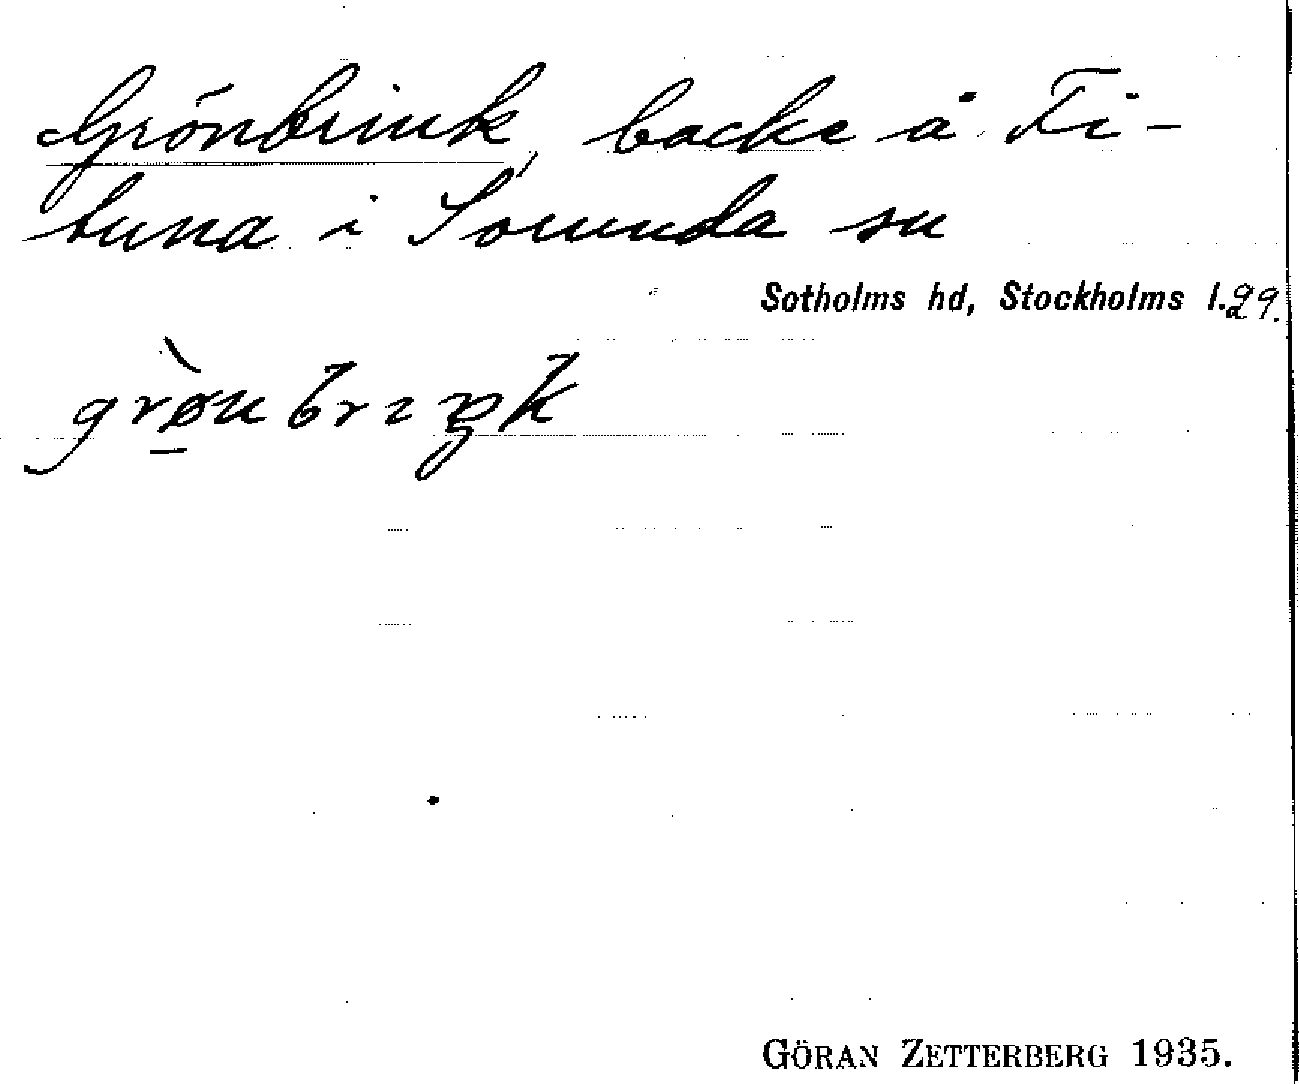 Grönbrink, backe å Fi-
tuna i Sorunda sn
Sotholms hd, Stockholms l. 29.
grø̀n brıŋk
GÖRAN ZETTERBERG 1935.